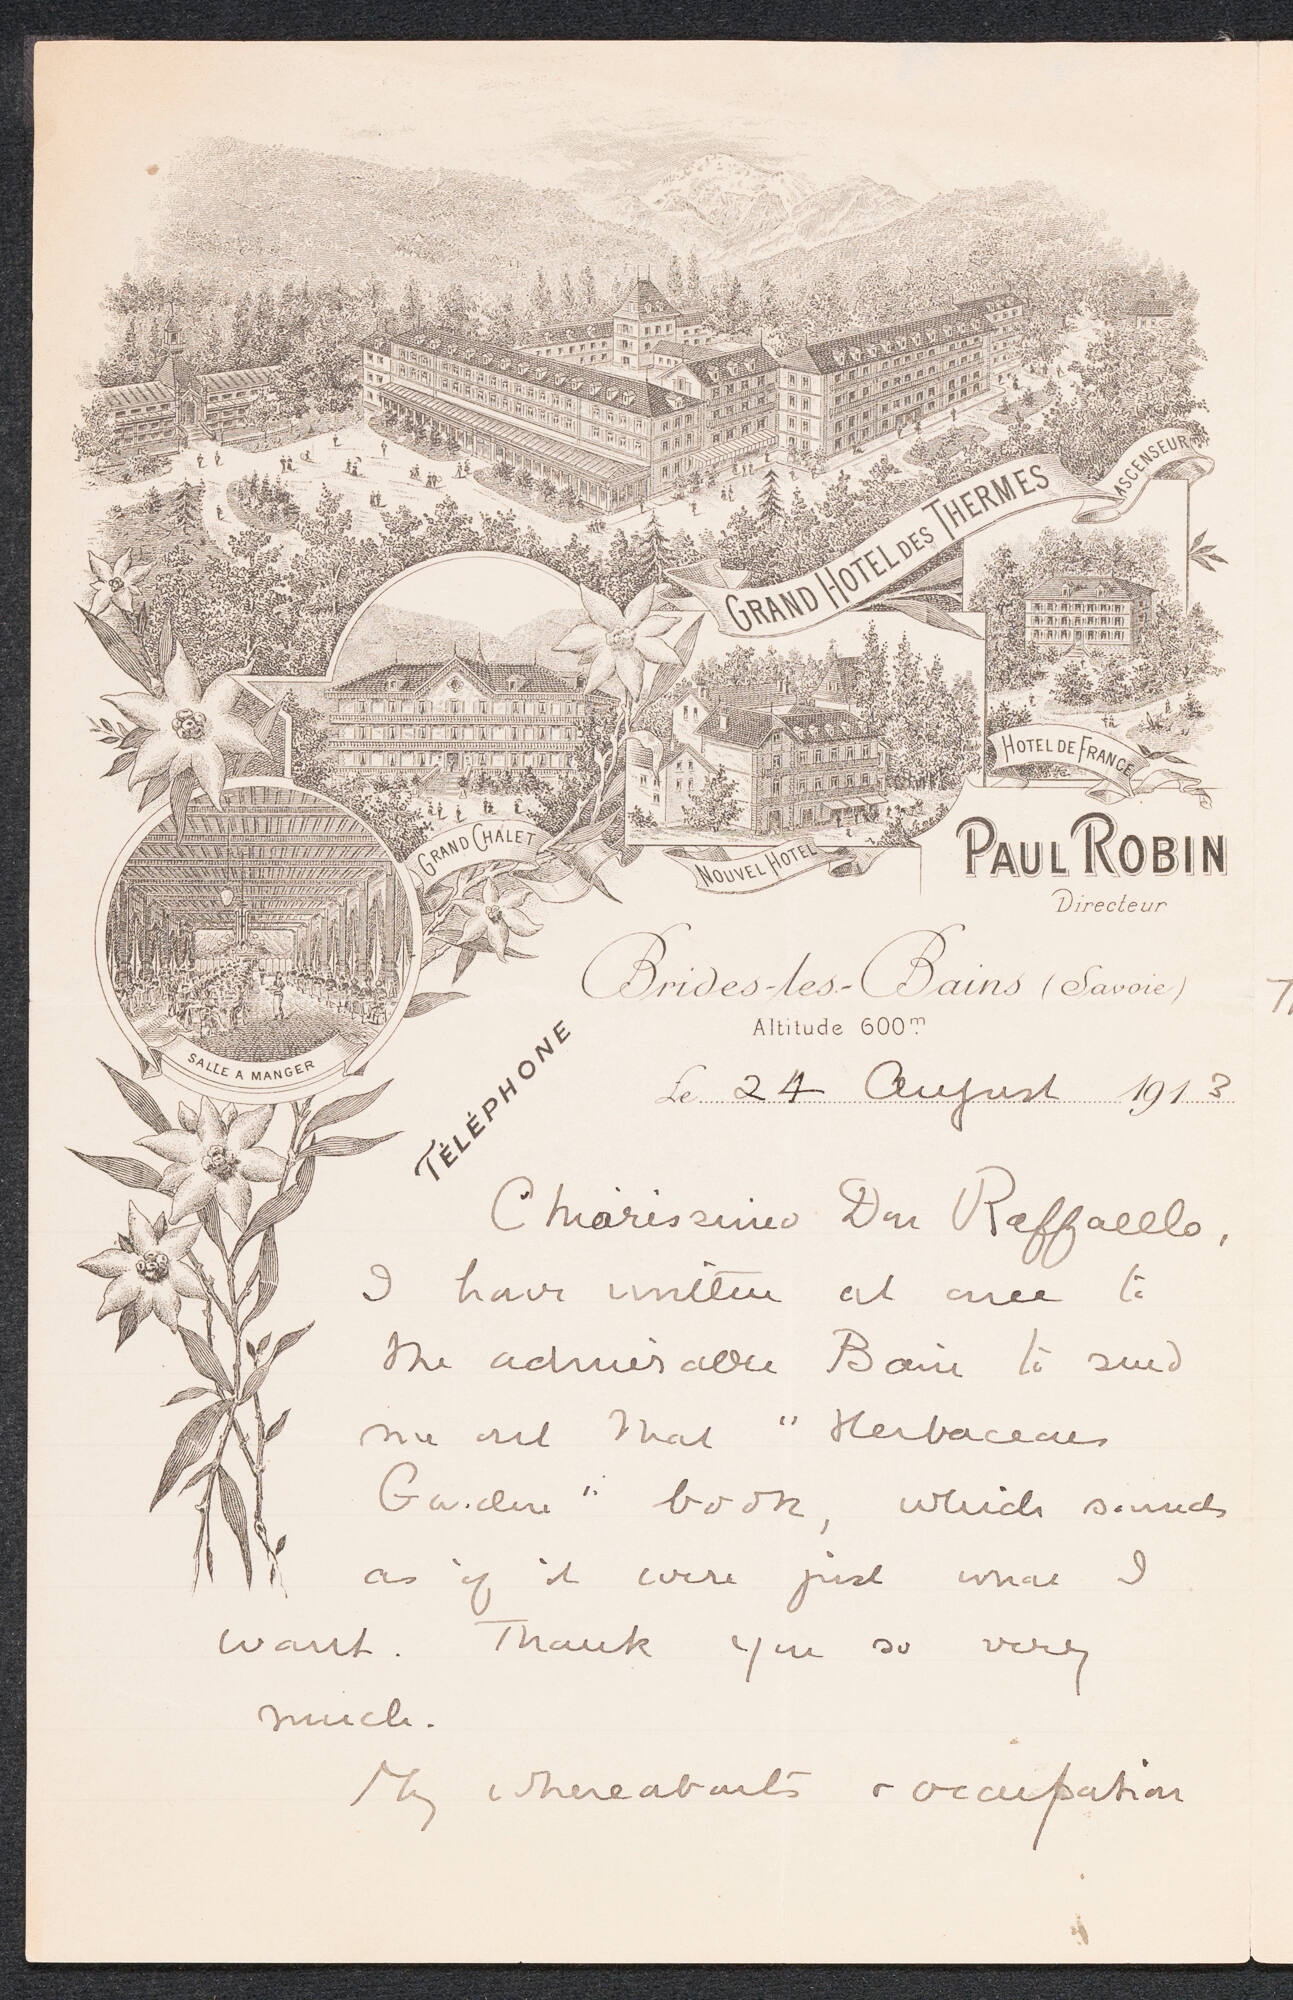 GRAND HOTEL DES THERMES
ASCENSEUR
HOTEL DE FRANCE
GRAND CHALET
NOUVEL HOTEL
SALLE A MANGER
PAUL ROBIN
Directeur
Brides-les-Bains (Savoie)
Altitude 600m
TÉLÉPHONE
Le 24 August 1913
Chiarissimo Don Raffaello,
I have written at once to
the admirable Bain to send
me out that "Herbaceous
Garden" book, which sounds
as if it were just what I
want. Thank you so very
much.
My whereabouts & occupation